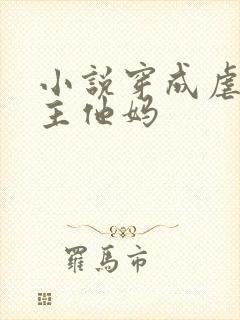 小說穿成虐
主他媽
羅馬市